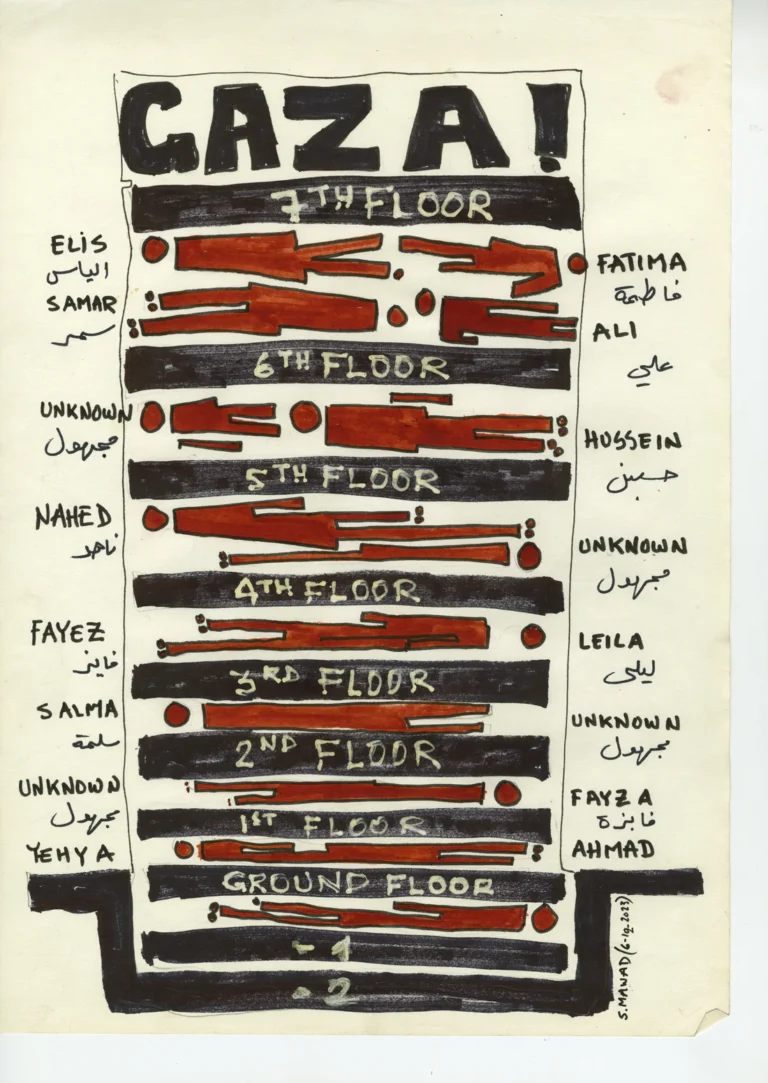 GAZA!
7TH FLOOR
ELIS
الياس
FATIMA
فاطمة
SAMAR
سمر
ALI
علي
6TH FLOOR
UNKNOWN
مجهول
HUSSEIN
حسين
5TH FLOOR
NAHED
ناهد
UNKNOWN
مجهول
4TH FLOOR
FAYEZ
فايز
LEILA
ليلى
3RD FLOOR
SALMA
سلمة
UNKNOWN
مجهول
2ND FLOOR
UNKNOWN
مجهول
FAYZA
فايزة
1ST FLOOR
YEHYA
AHMAD
GROUND FLOOR
-1
-2